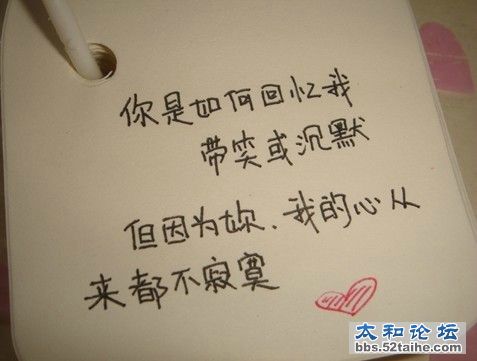 你是如何回忆我
带笑或沉默
但因为妳.我的心从
来都不寂寞
太和论坛
bbs.52taihe.com